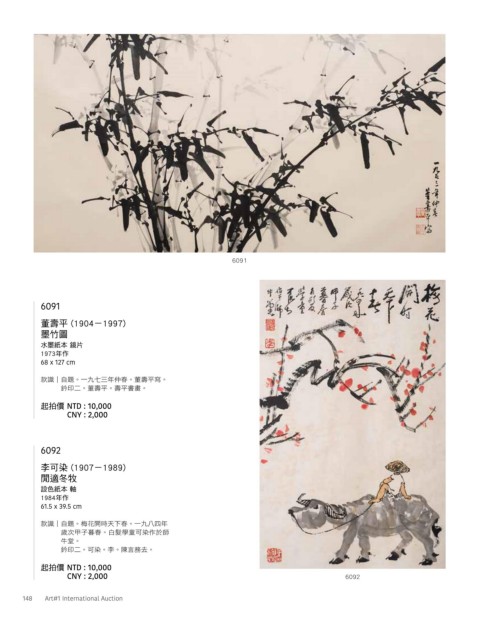 一九七三年仲春
董壽平寫
6091
6091
董壽平（1904－1997）
墨竹圖
水墨紙本 鏡片
1973年作
68 x 127 cm
款識｜自題。一九七三年仲春，董壽平寫。
鈐印二。董壽平，壽平書畫。
起拍價 NTD : 10,000
CNY : 2,000
梅花
開時
天下
春
6092
李可染（1907－1989）
閒適冬牧
設色紙本 軸
1984年作
61.5 x 39.5 cm
款識｜自題。梅花開時天下春。一九八四年
歲次甲子暮春，白髮學童可染作於師
牛堂。
鈐印二。可染，李，陳言務去。
起拍價 NTD : 10,000
CNY : 2,000
6092
148 Art#1 International Auction